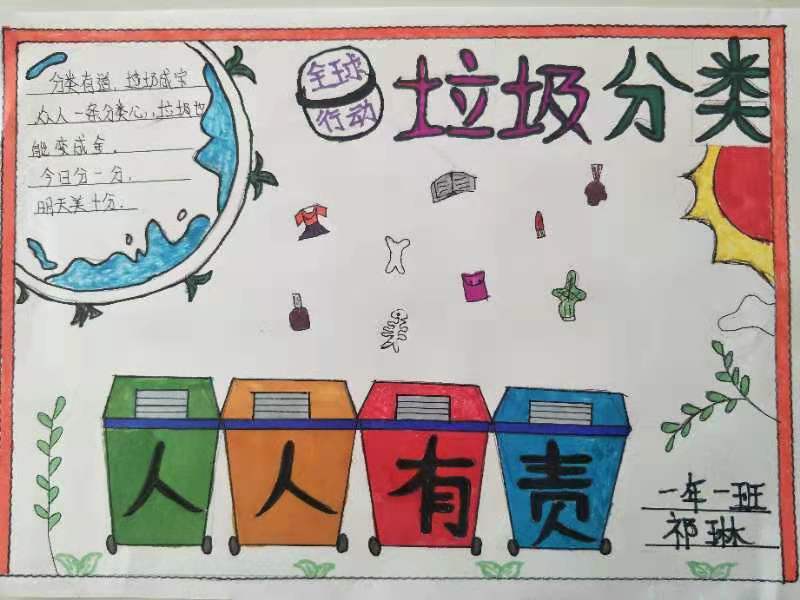 全球
行动
垃圾分类
分类有道,垃圾成宝
众人一条分类心,垃圾也
能变成金。
今日分一分,
明天美十分.
人人有责
一年一班
祁琳